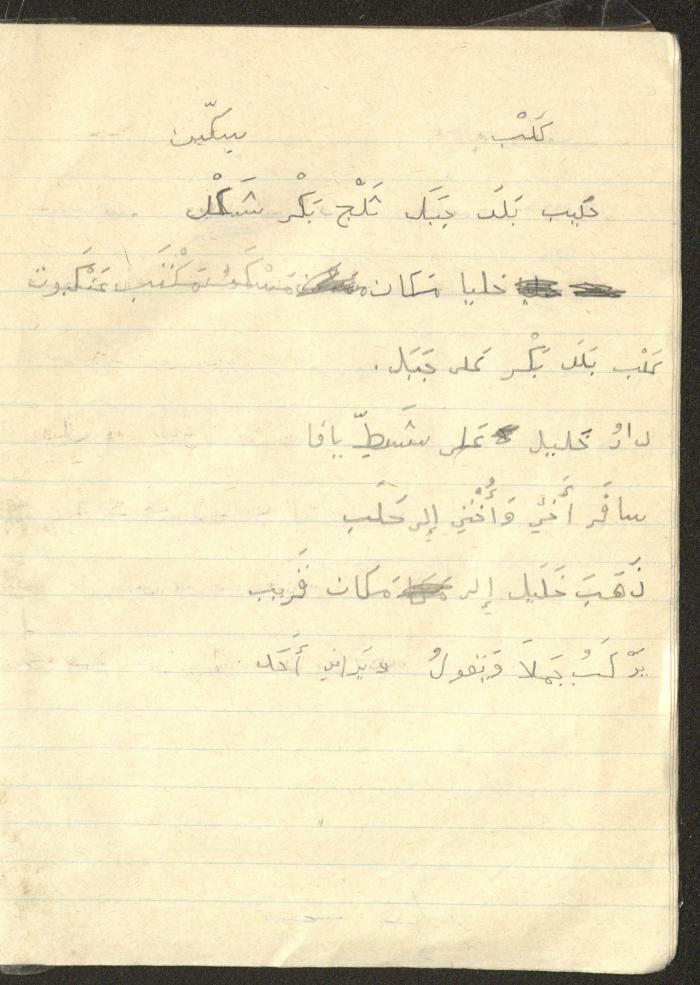 كَلْب سِكّين
حَليب بَلَد جَبَل ثَلْج بَكْر شَكْل
خليا مَكان مَكْتَب عَنْكَبوت
بَلَد بَكْر عَلى جَبَل.
دارُ خَليل عَلى شَطِّ يافا
سافَر أَخي وَأُخْتي إِلى حَلَب
ذَهَبَ خَليل إِلى مَكان قَريب
يَرْكَبُ جَمَلاً وَيَقولُ يَراني أَحَد